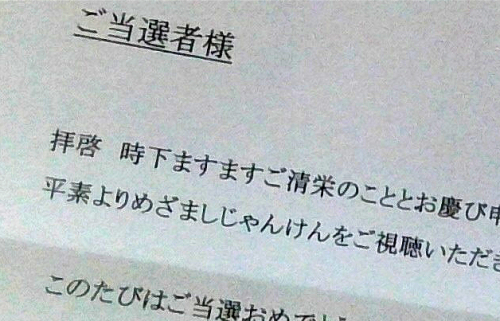 ご当選者様
拝啓 時下ますますご清栄のこととお慶び申
平素よりめざましじゃんけんをご視聴いただき
このたびはご当選おめでと